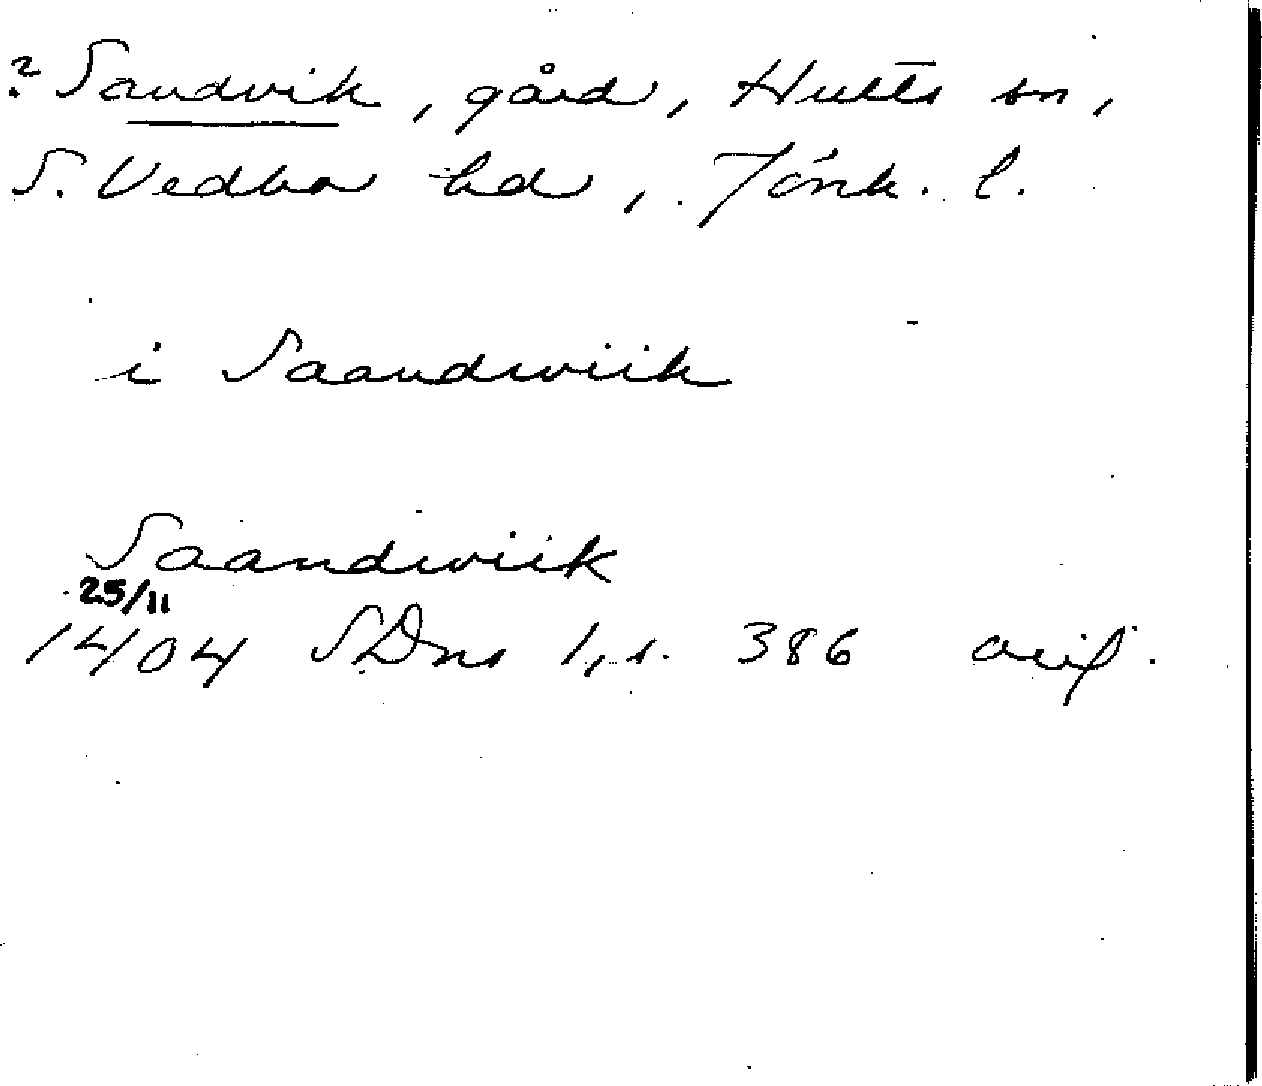 ? Sandvik, gård, Hults sn,
S. Vedbo hd, Jönk. l.
i Saandwiik
Saandwiik
25/11
1404 SDns 1, s. 386 avis.